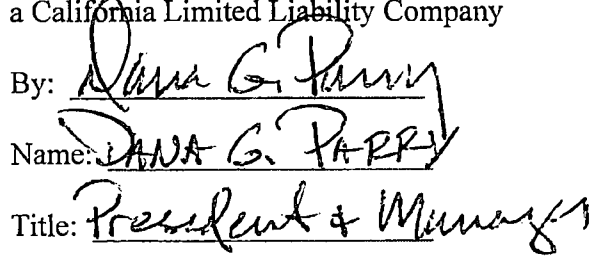 a California Limited Liability Company
By: Dana G. Parry
Name: DANA G. PARRY
Title: President & Manager